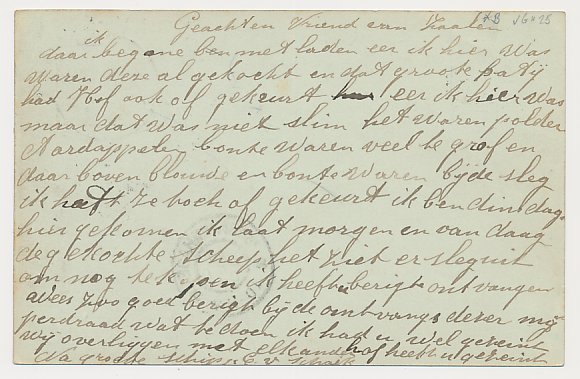 Geachten Vriend van Zaalen
ik
daar begone ben met laden eer ik hier was
waren deze al gekocht en dat groote patij
had Hof ook of gekeurt eer ik hier was
maar dat was niet slim het waren polder
Aardappelen bonte waren veel te grof en
daar boven blouwe en bonte waren bijde sleg
ik hatt ze toch of gekeurt ik ben dinsdag
hier gekomen ik laat morgen en van daag
de gekochte scheep het ziet er slegt uit
om nog te kopen ik heeft u berigt ontvangen
wees zoo goed berigt bij de ontvangs dezer mij
perdraad wat te doen ik had u wel geseint
wij overliggen met elkander hof heeft u geseint
Na groete schipr E v Schaik